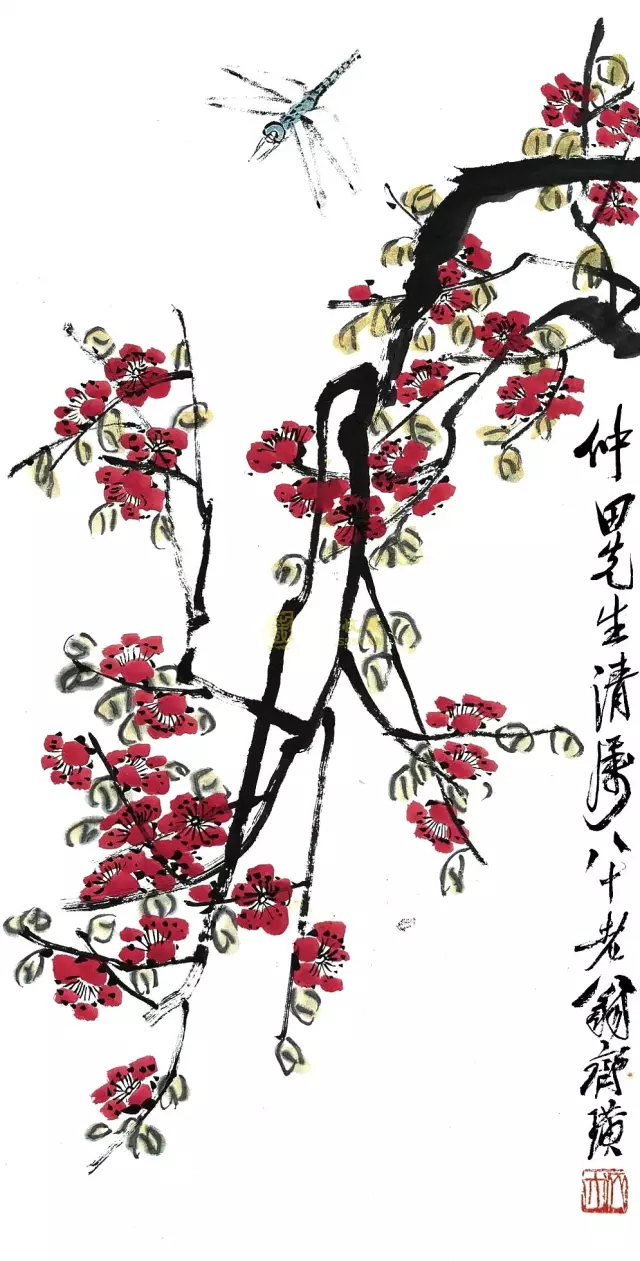 仲田先生清属八十老翁齊璜